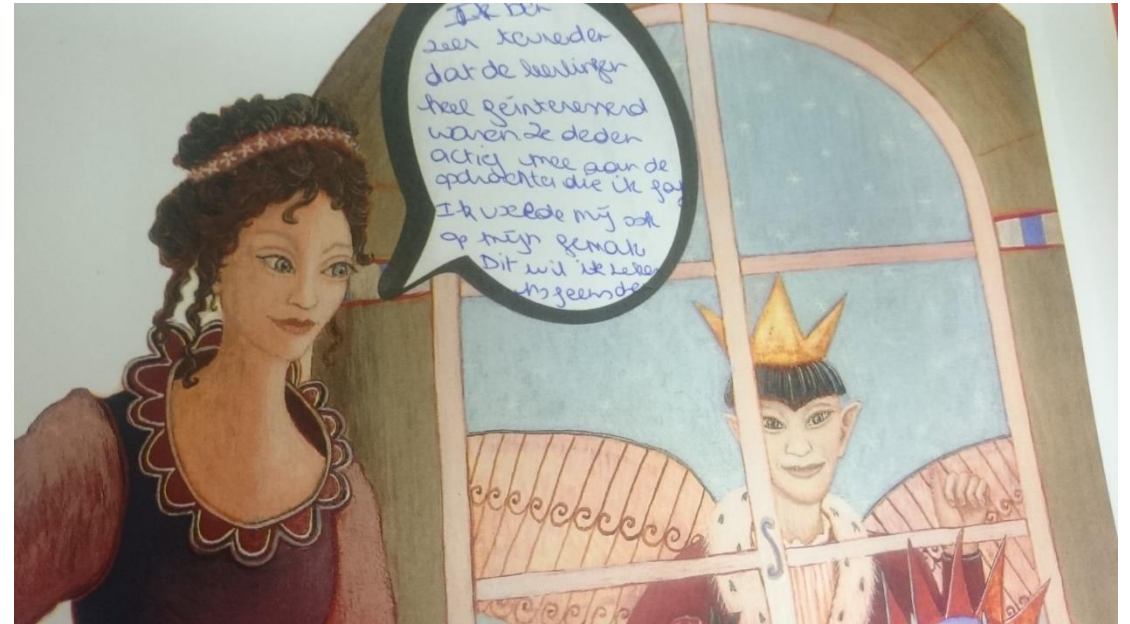 Ik ben
zeer tevreden
dat de leerlingen
heel geïnteresseerd
waren Ze deden
actief mee aan de
opdrachten die ik gaf
Ik voelde mij ook
op mijn gemak
Dit wil ik zeker